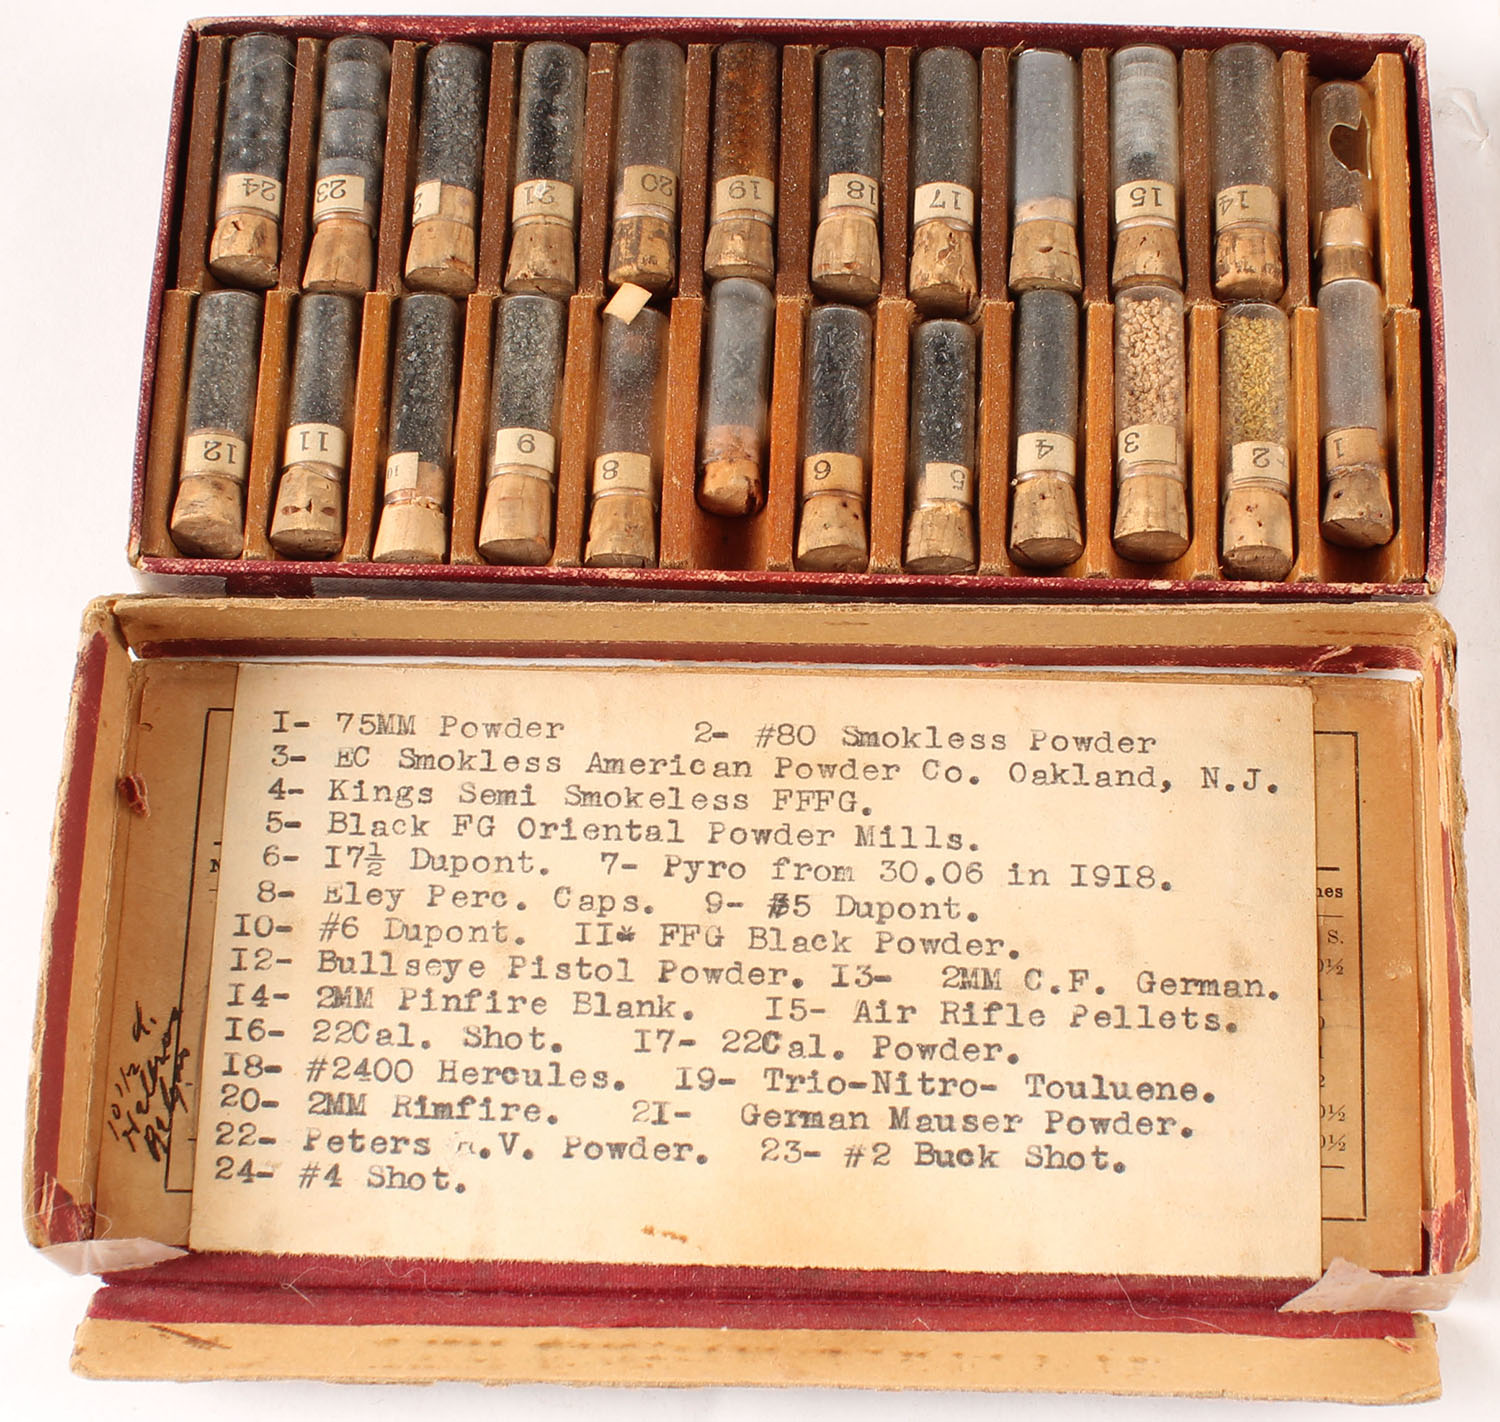 24 23 2 21 20 19 18 17 15 14
12 11 10 9 8 6 5 4 3 2 1
1- 75MM Powder 2- #80 Smokless Powder
3- EC Smokless American Powder Co. Oakland, N.J.
4- Kings Semi Smokeless FFFG.
5- Black FG Oriental Powder Mills.
6- 17½ Dupont. 7- Pyro from 30.06 in 1918.
8- Eley Perc. Caps. 9- #5 Dupont.
10- #6 Dupont. 11* FFG Black Powder.
12- Bullseye Pistol Powder. 13- 2MM C.F. German.
14- 2MM Pinfire Blank. 15- Air Rifle Pellets.
16- 22Cal. Shot. 17- 22Cal. Powder.
18- #2400 Hercules. 19- Trio-Nitro- Touluene.
20- 2MM Rimfire. 21- German Mauser Powder.
22- Peters .V. Powder. 23- #2 Buck Shot.
24- #4 Shot.
N
hes
S.
0½
2
0½
0½
10 1/2